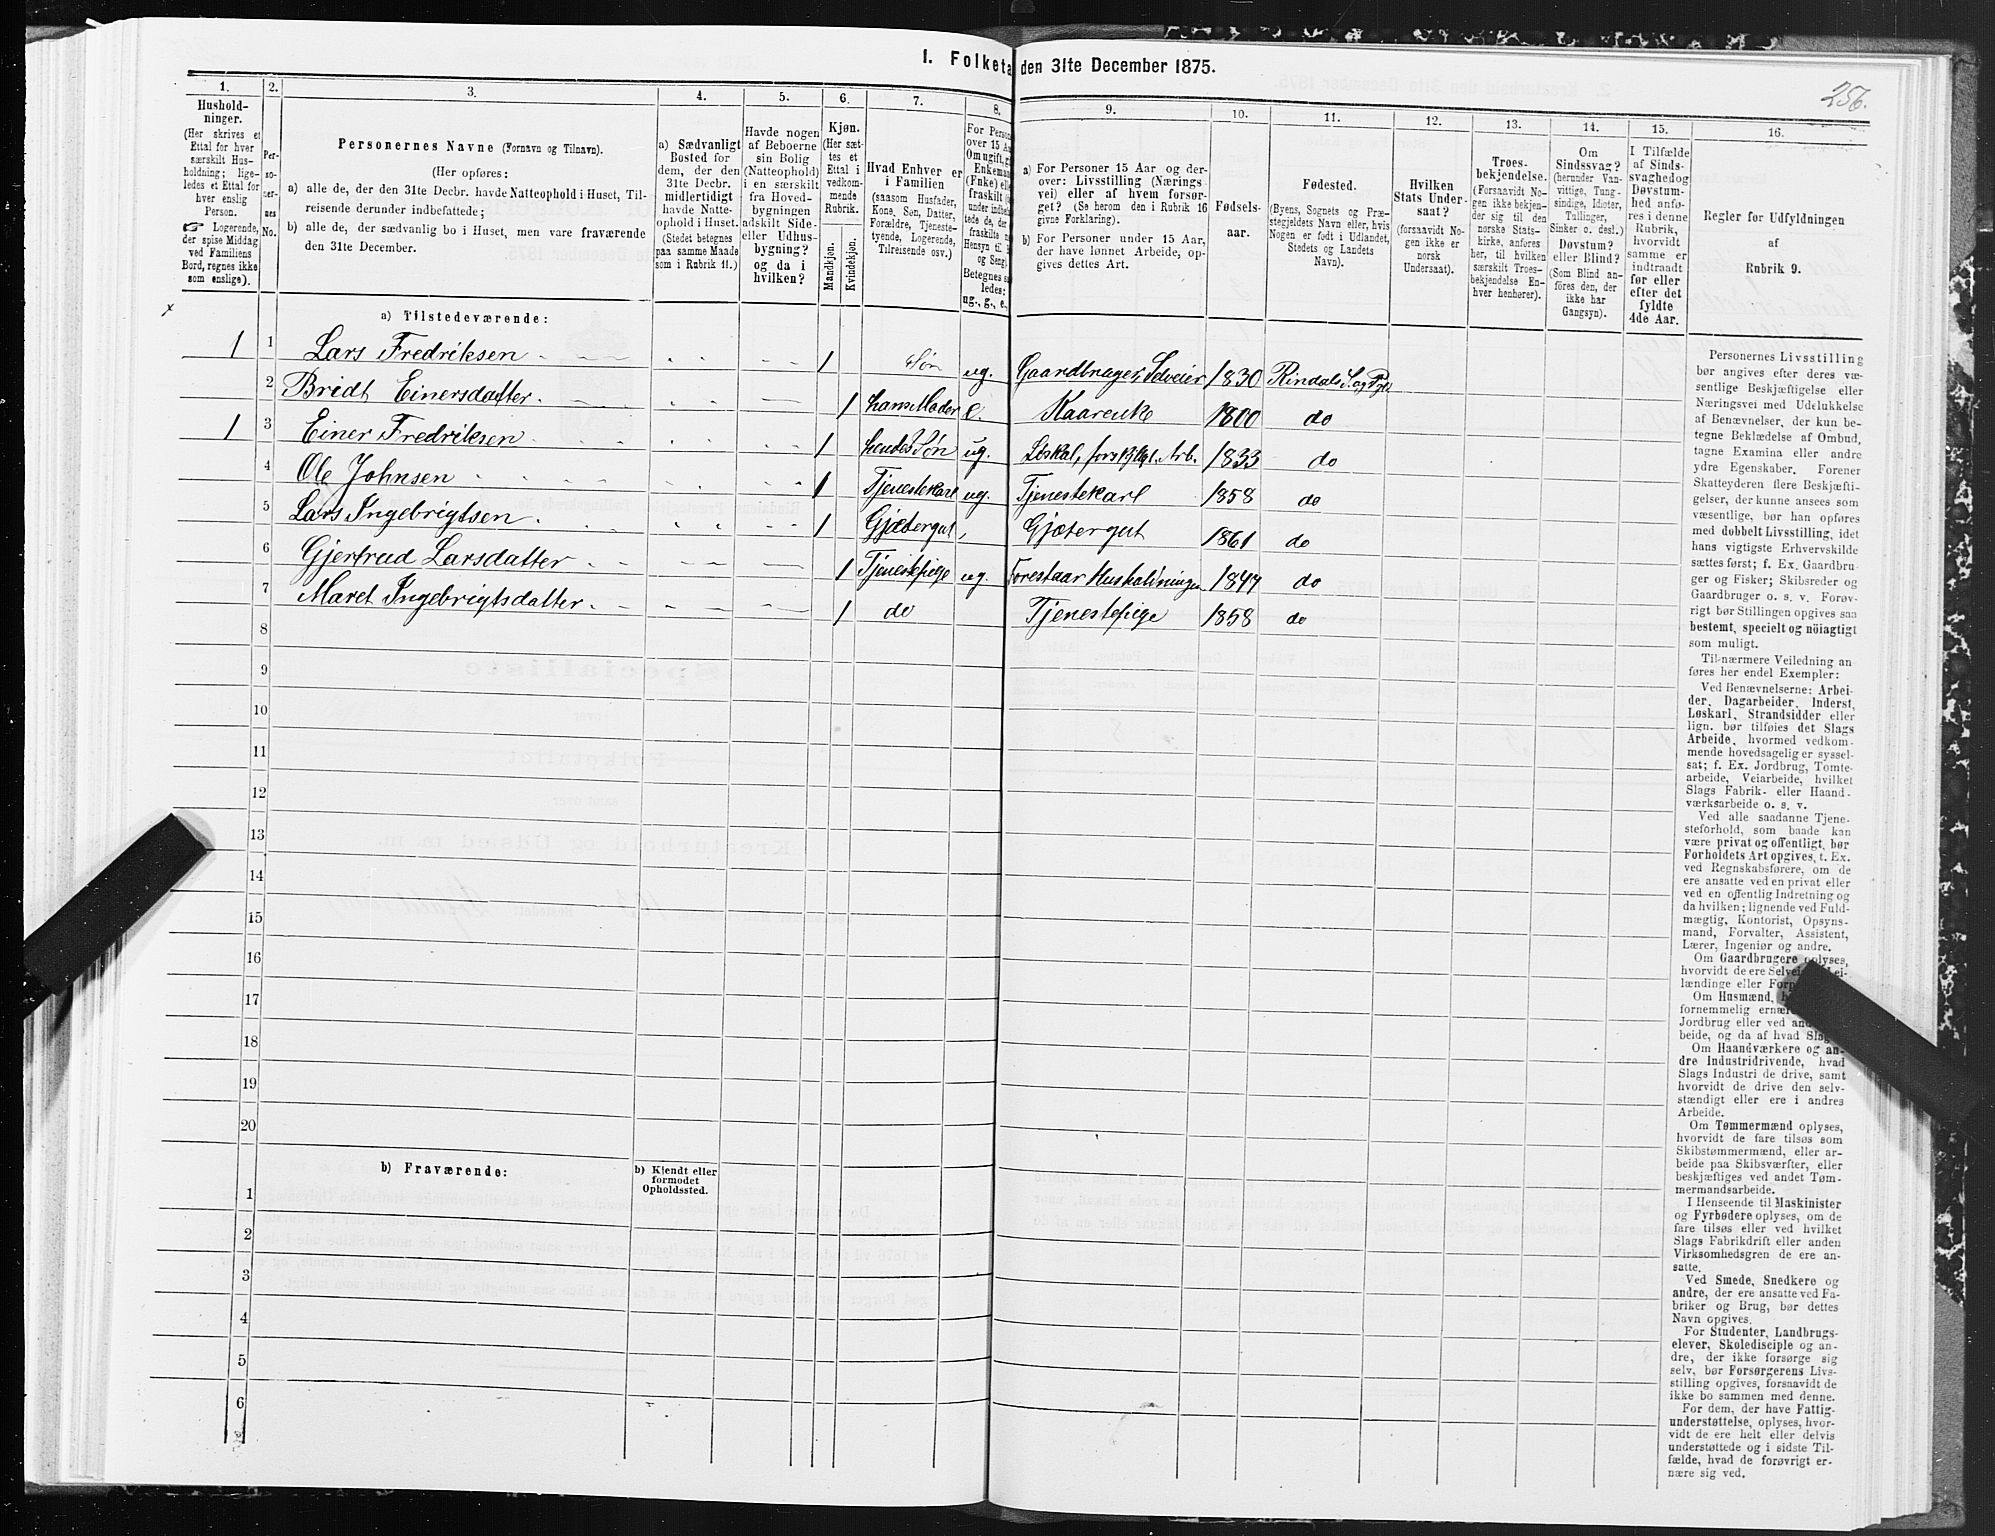 I. Folketa den 31te December 1875.
256.
1. 2. 3. 4. 5. 6. 7. 8. 9. 10. 11. 12. 13. 14. 15. 16.
Hushold-
ninger.
(Her skrives et
Ettal for hver
særskilt Hus-
holdning; lige-
ledes et Ettal for
hver enslig
Person.
Logerende,
der spise Middag
ved Familiens
Bord, regnes ikke
som enslige).
Per-
so-
ner-
nes
No.
Personernes Navne (Fornavn og Tilnavn).
(Her opføres:
a) alle de, der den 31te Decbr. havde Natteophold i Huset, Til-
reisende derunder indbefattede;
b) alle de, der sædvanlig bo i Huset, men vare fraværende
den 31te December.
a) Sædvanligt
Bosted for
dem, der den
31te Decbr.
midlertidigt
havde Natte-
ophold i Huset.
(Stedet betegnes
paa samme Maade
som i Rubrik 11.)
Havde nogen
af Beboerne
sin Bolig
(Natteophold)
i en særskilt
fra Hoved-
bygningen
adskilt Side-
eller Udhus-
bygning?
og da i
hvilken?
Kjøn.
(Her sæt-
tes et
Ettal i
vedkom-
mende
Rubrik.
Mandkjøn.
Kvindekjøn.
Hvad Enhver er
i Familien
(saasom Husfader,
Kone, Søn, Datter,
Forældre, Tjeneste-
tyende, Logerende,
Tilreisende osv.)
For Person
over 15 Aa
Om ugift, g
Enkeman
(Enke) ell
fraskilt
under indbe
tede de, de
fraskilte
Hensyn til
og Seng).
Betegnes s
ledes:
ug., g., e.,
a) For Personer 15 Aar og der-
over: Livsstilling (Nærings-
vei) eller af hvem forsør-
get? (Se herom den i Rubrik 16
givne Forklaring).
b) For Personer under 15 Aar,
der have lønnet Arbeide, op-
gives dettes Art.
Fødsels-
aar.
Fødested.
(Byens, Sognets og Præ-
stegjeldets Navn eller, hvis
Nogen er født i Udlandet,
Stedets og Landets
Navn).
Hvilken
Stats Under-
saat?
(forsaavidt No-
gen ikke er
norsk
Undersaat).
Troes-
bekjendelse.
(Forsaavidt No-
gen ikke bekjen-
der sig til den
norske Stats-
kirke, anføres
her, til hvilken
særskilt Troes-
bekjendelse En-
hver henhører).
Om
Sindssvag?
(herunder Van-
vittige, Tung-
sindige, Idioter,
Tullinger,
Sinker o. desl.)
Døvstum?
eller Blind?
(Som Blind an-
føres den, der
ikke har
Gangsyn).
I Tilfælde
af Sinds-
svaghedog
Døvstum-
hed anfø-
res i denne
Rubrik,
hvorvidt
samme er
indtraadt
før eller
efter det
fyldte
4de Aar.
Regler før Udfyldningen
af
Rubrik 9.
a) Tilstedeværende:
1 1 Lars Fredriksen 1 Søn ug. Gaardbruger, Selveier 1830 Rindals S. og Pgj.
2 Bridt Einersdatter 1 hans Moder e. Kaarenke 1800 do
1 3 Einer Fredriksen 1 hendes Søn ug. 1833 do
4 Ole Johnsen 1 Tjenestekarl ug. Tjenestekarl 1858 do
5 Lars Ingebrigtsen 1 Gjætergut Gjætergut 1861 do
6 Gjertrud Larsdatter 1 Tjenestepige ug. Forestaar Husholdningen do
7 Maret Ingebrigtsdatter 1 do Tjenestepige 1858 do
8
9
10
11
12
13
14
15
16
17
18
19
20
b) Fraværende:
b) Kjendt eller
formodet
Opholdssted.
1
2
3
4
5
6
Personernes Livsstilling
bør angives efter deres væ-
sentlige Beskjæftigelse eller
Næringsvei med Udelukkelse
af Benævnelser, der kun be-
tegne Beklædelse af Ombud,
tagne Examina eller andre
ydre Egenskaber. Forener
Skatteyderen flere Beskjæfti-
gelser, der kunne ansees som
væsentlige, bør han opføres
med dobbelt Livsstilling, idet
hans vigtigste Erhvervskilde
sættes først; f. Ex. Gaardbru-
ger og Fisker; Skibsreder og
Gaardbruger o. s. v. Forøv-
rigt bør Stillingen opgives saa
bestemt, specielt og nöiagtigt
som muligt.
Til nærmere Veiledning an-
føres her endel Exempler:
Ved Benævnelserne: Arbei-
der, Dagarbeider, Inderst,
Løskarl, Strandsidder eller
lign. bør tilføies det Slags
Arbeide, hvormed vedkom-
mende hovedsagelig er syssel-
sat; f. Ex. Jordbrug, Tomte-
arbeide, Veiarbeide, hvilket
Slags Fabrik- eller Haand-
værksarbeide o. s. v.
Ved alle saadanne Tjene-
steforhold, som baade kan
være privat og offentligt, bør
Forholdets Art opgives, t. Ex.
ved Regnskabsførere, om de
ere ansatte ved en privat eller
ved en offentlig Indretning og
da hvilken; lignende ved Fuld-
mægtig, Kontorist, Opsyns-
mand, Forvalter, Assistent,
Lærer, Ingeniør og andre.
Om Gaardbrugere oplyses,
hvorvidt de ere Selvei
lændinge eller
Om Husmænd,
fornemmelig
Jordbrug eller ved
beide, og da af hvad Slags
Om Haandværkere og an-
dre Industridrivende, hvad
Slags Industri de drive, samt
hvorvidt de drive den selv-
stændigt eller ere i andres
Arbeide.
Om Tømmermænd oplyses,
hvorvidt de fare tilsøs som
Skibstømmermænd, eller ar-
beide paa Skibsværfter, eller
beskjæftiges ved andet Tøm-
mermandsarbeide.
I Henseende til Maskinister
og Fyrbødere oplyses, om de
fare tilsøs eller ved hvilket
Slags Fabrikdrift eller anden
Virksomhedsgren de ere an-
satte.
Ved Smede, Snedkere og
andre, der ere ansatte ved Fa-
briker og Brug, bør dettes
Navn opgives.
For Studenter, Landbrugs-
elever, Skoledisciple og an-
dre, der ikke forsørge sig
selv, bør Forsørgerens Livs-
stilling opgives, forsaavidt de
ikke bo sammen med denne.
For dem, der have Fattig-
understøttelse, oplyses, hvor-
vidt de ere helt eller delvis
understøttede og i sidste Til-
fælde, hvad de forøvrigt er-
nære sig ved.